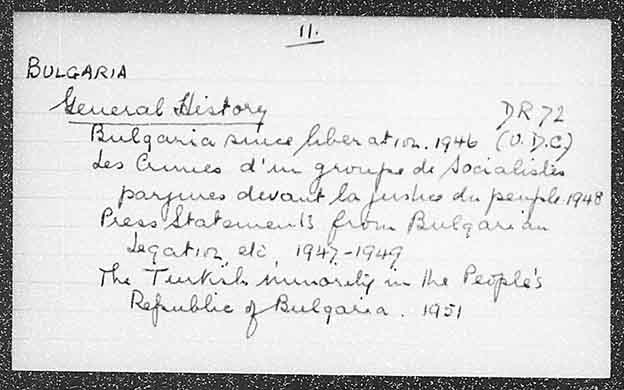 11.
BULGARIA
General History DR72
Bulgaria since liberation. 1946 (U.D.C)
Les Crimes d'un groupe de Socialistes
parjures devant la justice du peuple. 1948
Press Statements from Bulgarian
Legation, etc 1947-1949
The Turkish minority in the People's
Republic of Bulgaria. 1951